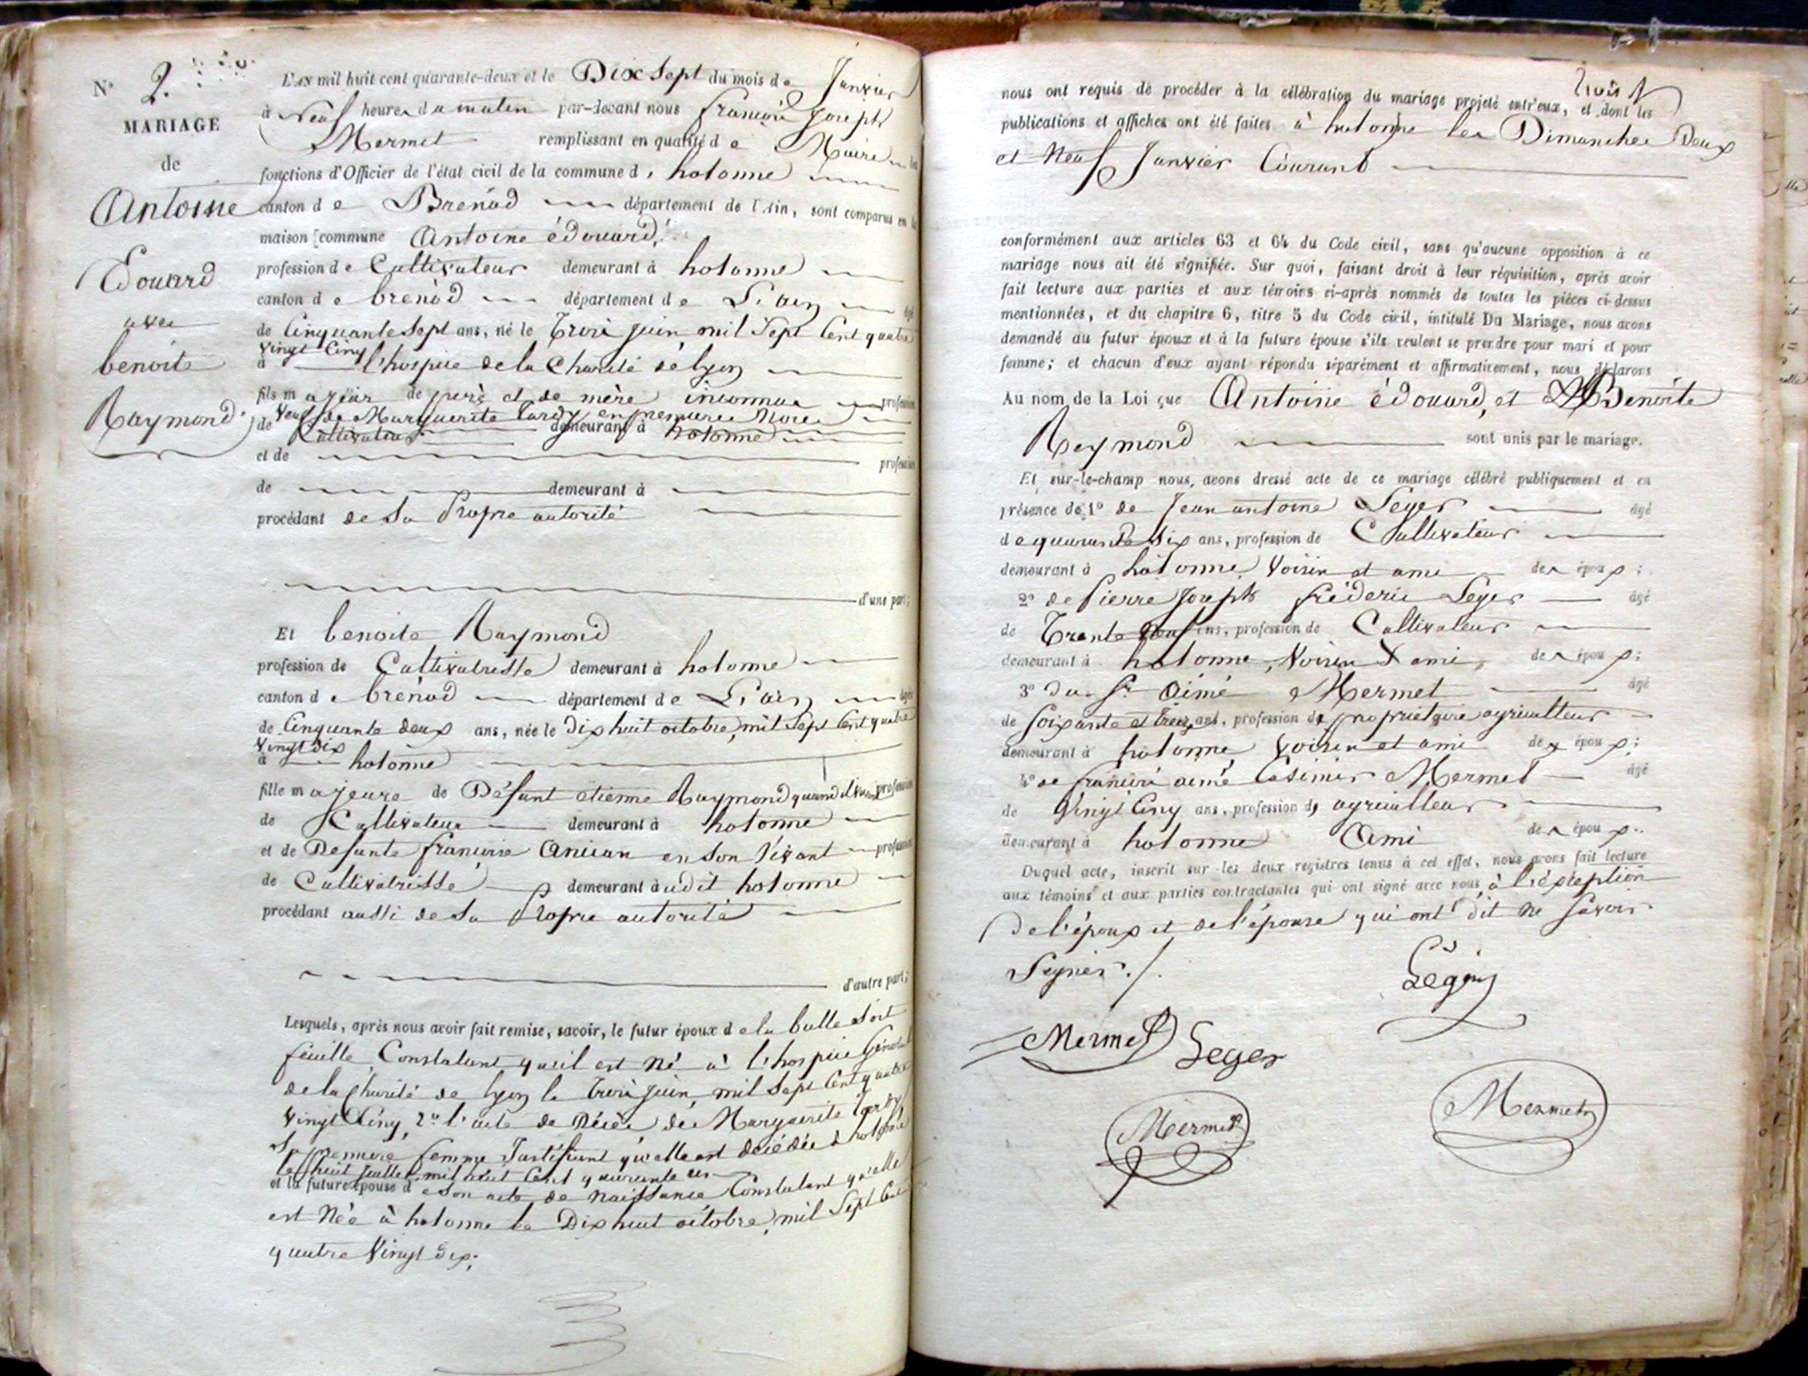 N° 2.
MARIAGE
de
Antoine
Edouard
avec
benoite
Raymond
L'an mil huit cent quarante-deux et le Dix sept du mois de Janvier
à Neuf heures du matin par-devant nous françois Joseph
Mermet remplissant en qualité de Maire les
fonctions d'Officier de l'état civil de la commune d' hotonne
canton de Brenod département de l'Ain, sont comparus en la
maison commune Antoine édouard,
profession de Cultivateur demeurant à hotonne
canton de brénod département de L'ain âgé
de Cinquante Sept ans, né le Trois juin mil Sept Cent quatre
Vingt Cinq
à l'hospice de la Charité de lyon
fils majeur de père et de mère inconnus profession
Veuf de Marguerite Tardy en premieres Noces
de Cultivateur demeurant à hotonne
et de profession
de demeurant à
procédant de Sa Propre autorité
d'une part;
Et benoite Raymond
profession de Cultivatrisse demeurant à hotonne
canton de brénod département de L'ain âgée
de Cinquante deux ans, née le dix huit octobre, mil Sept Cent quatre
Vingt dix
à hotonne
fille majeure de Défunt etienne Raymond quand il vivait profession
de Cultivateur demeurant à hotonne
et de Defunte françoise Ancian en Son Vivant profession
de Cultivatrisse demeurant à udit hotonne
procédant aussi de Sa Propre autorité
d'autre part;
Lesquels, après nous avoir fait remise, savoir, le futur époux de la bulle Soit
feuille Constatant qu'il est Né à l'hospice Général
de la Charité de lyon le Trois juin, mil Sept Cent quatre
Vingt Cinq, 2° l'acte de Décès de Marguerite Tardy
Sa premiere femme Justifiant qu'elle est décédée à hotonne
le huit juillet mil huit Cent quarante un
et la future épouse de son acte de naissance Constatant qu'elle
est Née à hotonne le Dix huit octobre, mil Sept Cent
quatre Vingt dix.
trois
nous ont requis de procéder à la célébration du mariage projeté entr'eux, et dont les
publications et affiches ont été faites à hotonne les Dimanches Deux
et Neuf Janvier Courant
conformément aux articles 63 et 64 du Code civil, sans qu'aucune opposition à ce
mariage nous ait été signifiée. Sur quoi, faisant droit à leur réquisition, après avoir
fait lecture aux parties et aux témoins ci-après nommés de toutes les pièces ci-dessus
mentionnées, et du chapitre 6, titre 5 du Code civil, intitulé Du Mariage, nous avons
demandé au futur époux et à la future épouse s'ils veulent se prendre pour mari et pour
femme; et chacun d'eux ayant répondu séparément et affirmativement, nous déclarons
Au nom de la Loi que Antoine édouard, et Benoite
Reymond sont unis par le mariage.
Et sur-le-champ nous avons dressé acte de ce mariage célébré publiquement et en
présence de 1° de Jean antoine Leger âgé
de quarante Six ans, profession de Cultivateur
demeurant à hotonne, Voisin et ami des époux;
2° de Pierre Joseph fréderic Leger âgé
de Trente Neuf ans, profession de Cultivateur
demeurant à hotonne, Voisin & ami, des époux;
3° du Sr Aimé Mermet âgé
de Soixante et treize ans, profession de propriétaire agriculteur
demeurant à hotonne, Voisin et ami des époux;
4° de françois aimé Casimir Mermet âgé
de Vingt Cinq ans, profession d' agriculteur
demeurant à hotonne Ami des époux.
Duquel acte, inscrit sur les deux registres tenus à cet effet, nous avons fait lecture
aux témoins et aux parties contractantes qui ont signé avec nous, à l'éxception
De l'époux et de l'épouse qui ont dit ne Savoir
Signer ./.
Mermet Leger
Mermet
Mermet